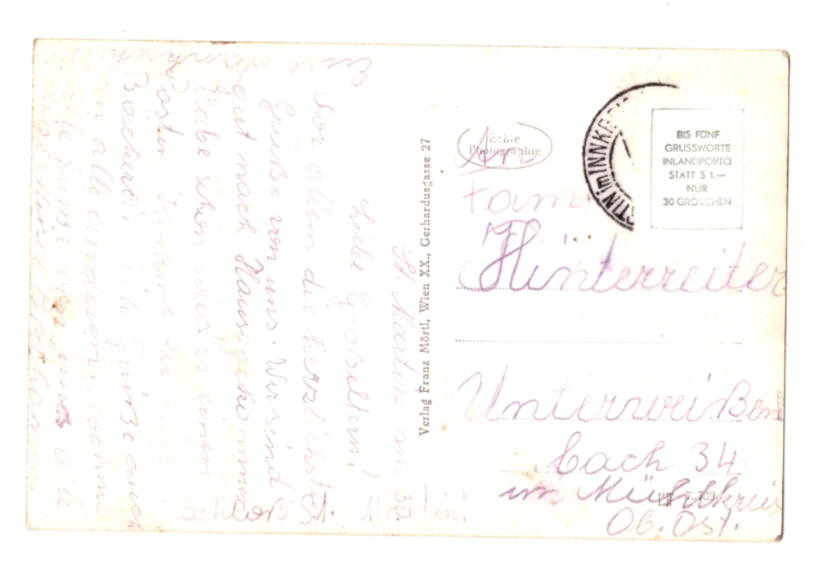 St. Martin am 30
Liebe Großeltern!
Vor allem die herzlichsten
Grüße von uns. Wir sind
gut nach Hause gekommen
Habe schon wieder einen
Posten
Bäckerei. Viele Grüße auch
an alle anderen. Nochmals
viele Grüße von uns alle
Schloß St. Martin!
Verlag Franz Mörtl, Wien XX., Gerhardusgasse 27
Echte
Photographie
TIN im INNKR
BIS FÜNF
GRUSSWORTE
INLANDPORTO
STATT S 1.—
NUR
30 GROSCHEN
An
Fam.
Hinterreiter
Unterweißen
bach 34
im Mühlkreis
Ob. Öst.